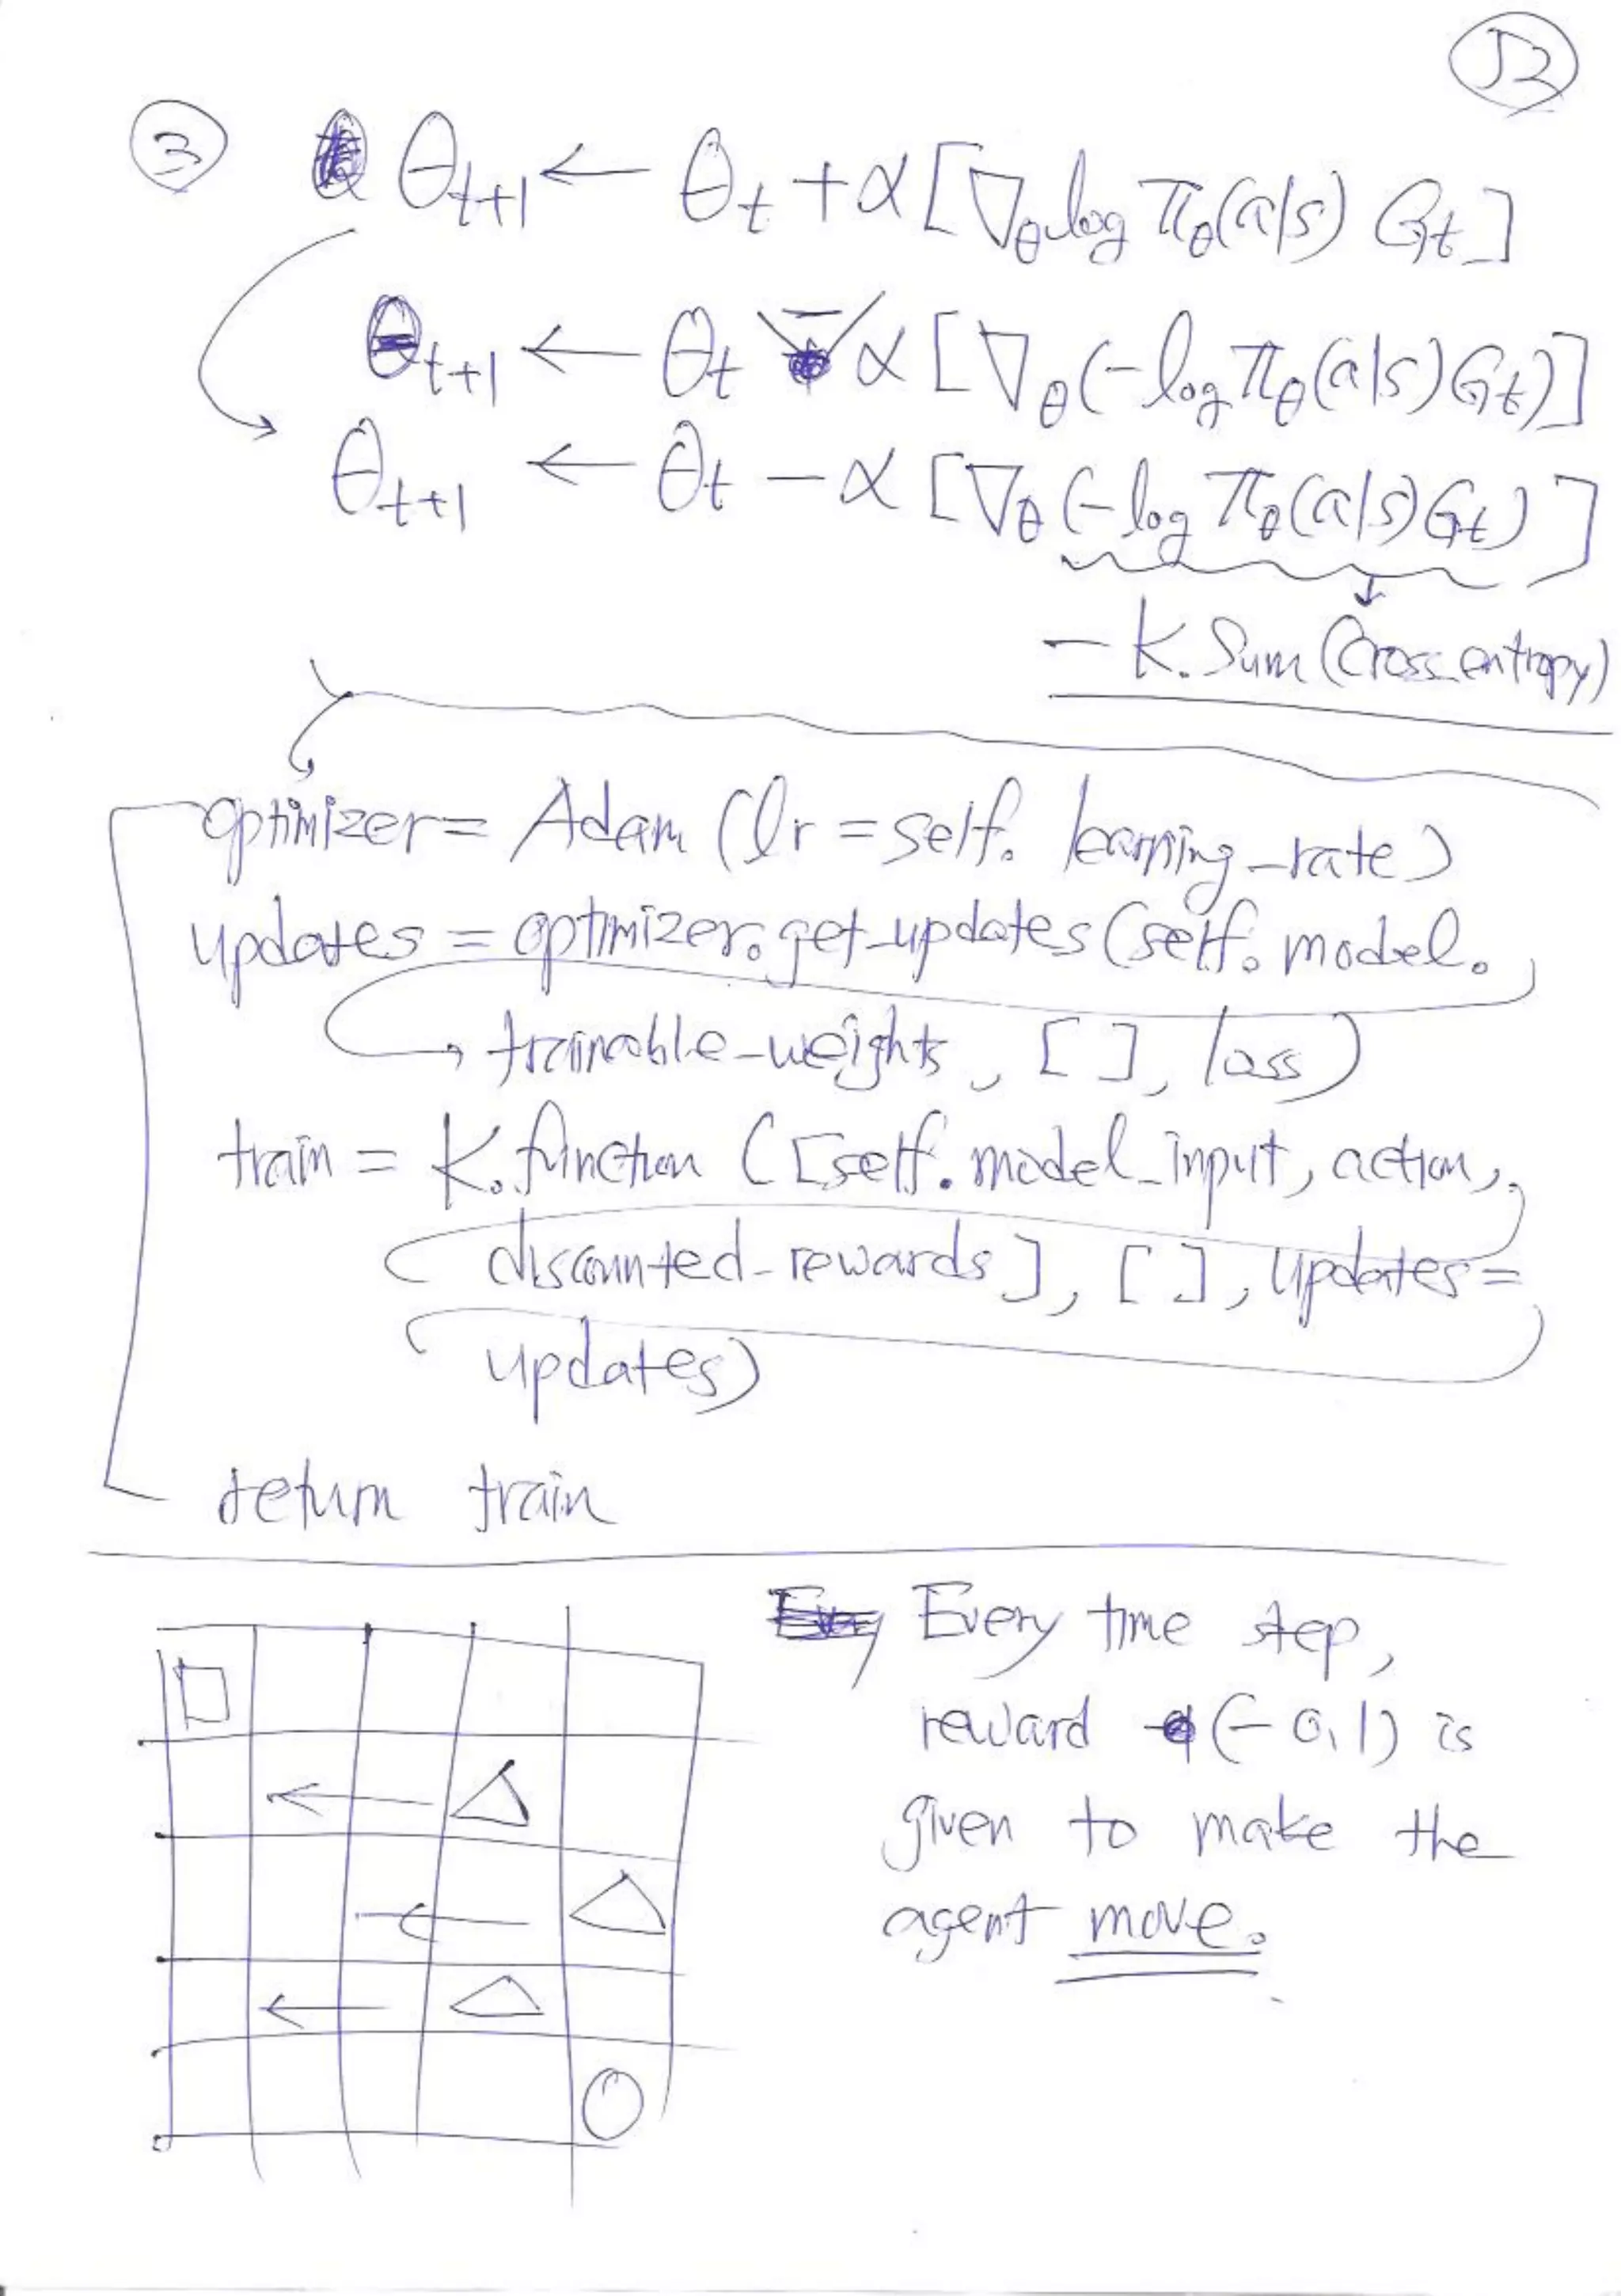 52
③ θt+1 ← θt + α [∇θ log πθ(a|s) Gt]
θt+1 ← θt - α [∇θ(-log πθ(a|s) Gt)]
θt+1 ← θt - α [∇θ(-log πθ(a|s) Gt)]
- K.Sum(Cross_entropy)
optimizer = Adam (lr = self. learning_rate)
updates = optimizer.get_updates (self. model.
trainable_weights, [ ], loss)
train = K.function ([self.model_input, action,
discounted_rewards], [ ], updates=
updates)
return train
Every Every time step,
reward (-0,1) is
given to make the
agent move.